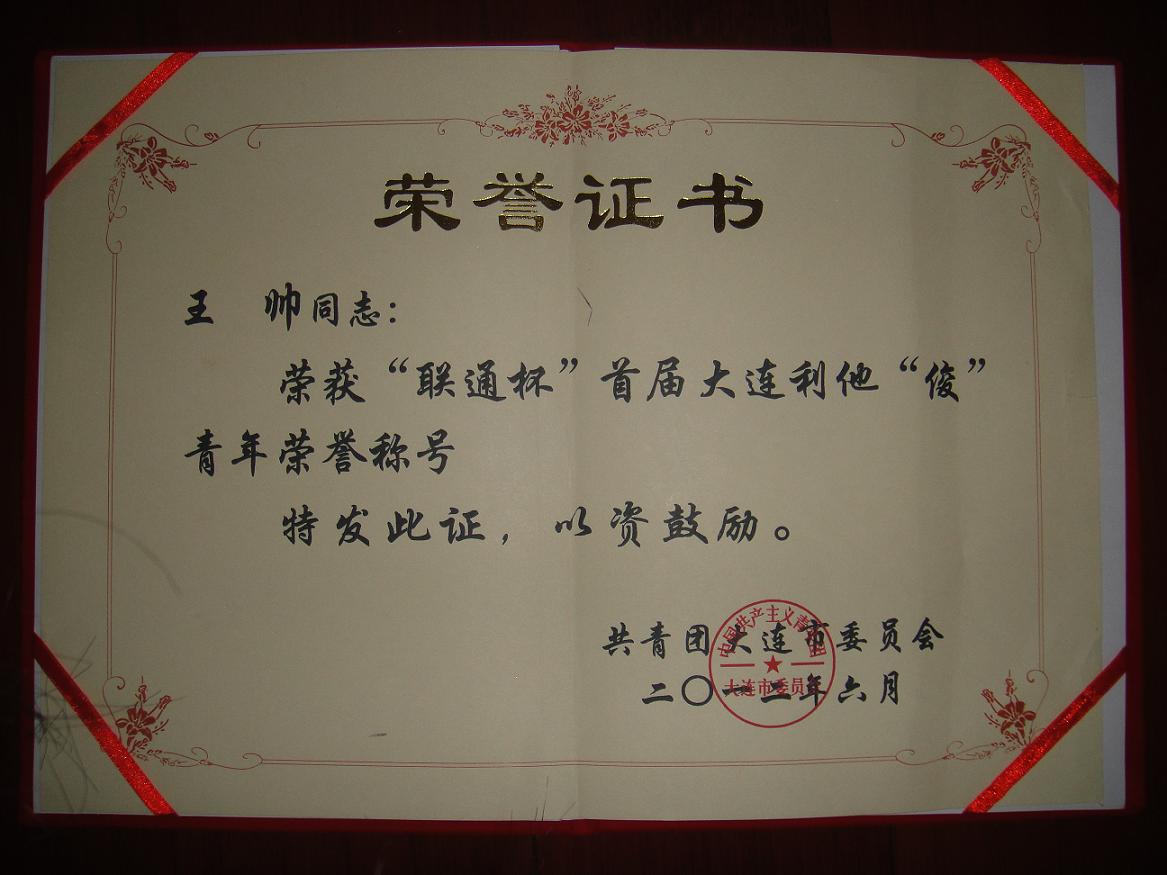 荣誉证书
王 帅同志：
荣获“联通杯”首届大连利他“俊”
青年荣誉称号
特发此证，以资鼓励。
共青团大连市委员会
二〇一二年六月
中国共产主义青年团
大连市委员会